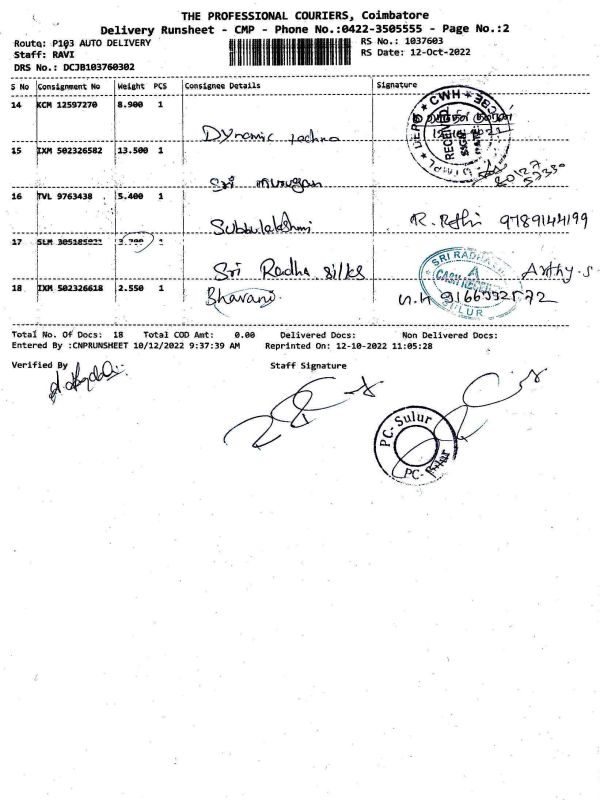 THE PROFESSIONAL COURIERS, Coimbatore
Delivery Runsheet - CMP - Phone No.:0422-3505555 - Page No.:2
Route: P103 AUTO DELIVERY RS No.: 1037603
Staff: RAVI RS Date: 12-Oct-2022
DRS No.: DCJB103760302
S No Consignment No Weight PCS Consignee Details Signature
14 KCM 12597270 8.900 1
Dynamic Techno
DEPO ★ CWH ★ CBE
RECEIVED
SIGN
DATE
15 IXM 502326582 13.500 1
Sri murugan
16 TVL 9763438 5.400 1
Subbulakshmi R. Rathi 9789144199
17 SLM 305185921 3.700 1
Sri Radha silks Arthy.S
SRI RADHA
CASH
SULUR
18 IXM 502326618 2.550 1
Bharani
Total No. Of Docs: 18 Total COD Amt: 0.00 Delivered Docs: Non Delivered Docs:
Entered By :CNPRUNSHEET 10/12/2022 9:37:39 AM Reprinted On: 12-10-2022 11:05:28
Verified By Staff Signature
PC- Sulur